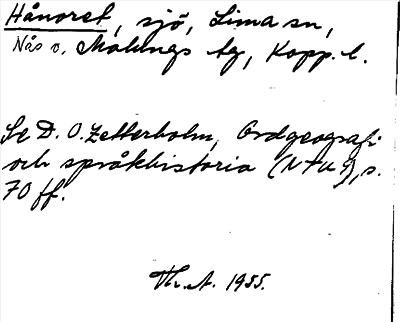 Hånoret, sjö, Lima sn,
Nås o. Malungs tg, Kopp. l.
Se D. O. Zetterholm, Ordgeografi
och språkhistoria (NTU 9), s.
70 ff.
Th. A. 1955.